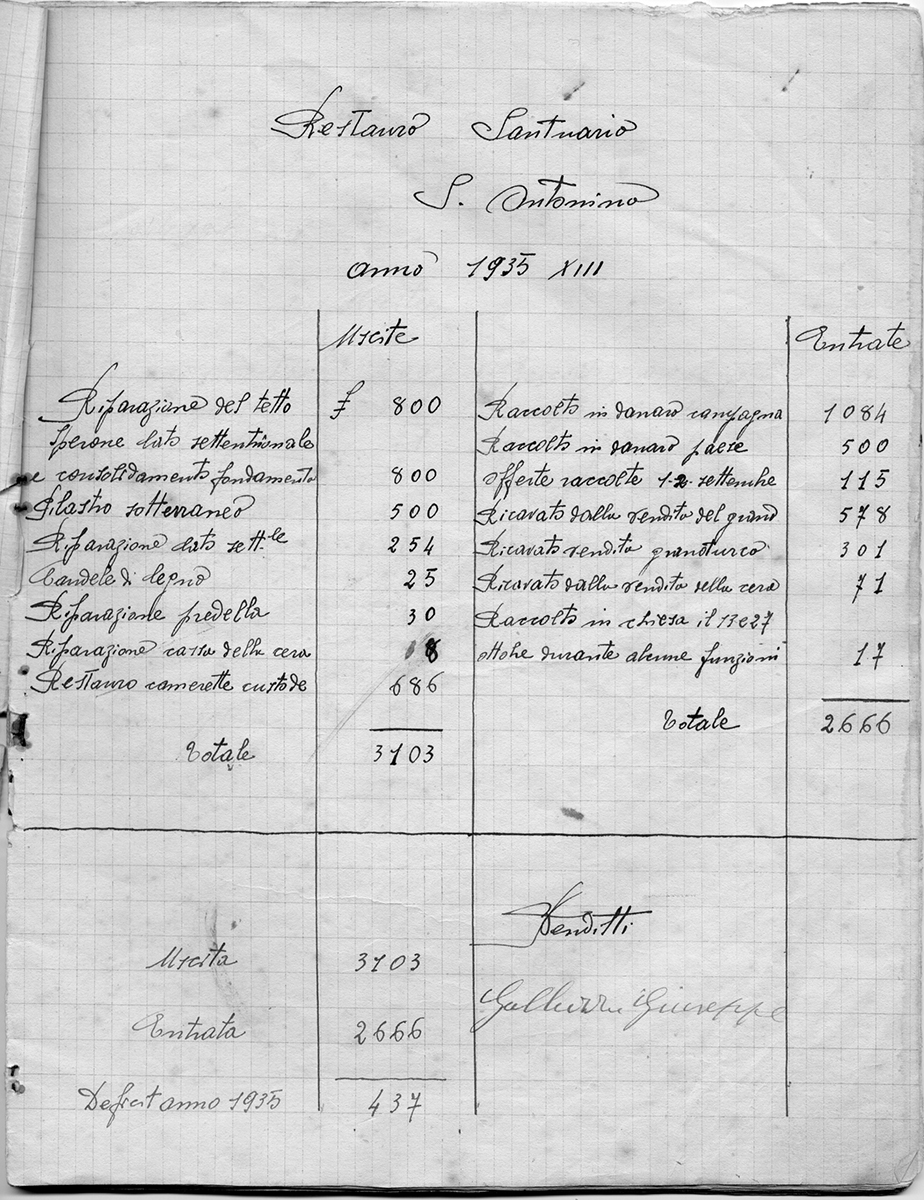 Restauro Santuario
S. Antonino
anno 1935 XIII
Uscite
Riparazione del tetto £ 800
Sperone lato settentrionale
e consolidamento fondamento 800
Pilastro sotterraneo 500
Riparazione lato sett.le 254
Candele di legno 25
Riparazione predella 30
Riparazione cassa della cera 8
Restauro camerette custode 686
Totale 3103
Entrate
Raccolto in danaro campagna 1084
Raccolto in danaro paese 500
offerte raccolte 1-2- settembre 115
Ricavato dalla vendita del grano 578
Ricavato vendita granoturco 301
Ricavato dalla vendita della cera 71
Raccolto in chiesa il 13 e 27
ttobre durante alcune funzioni 17
Totale 2666
Uscita 3103
Entrata 2666
Deficit anno 1935 437
Venditti
Giuseppe